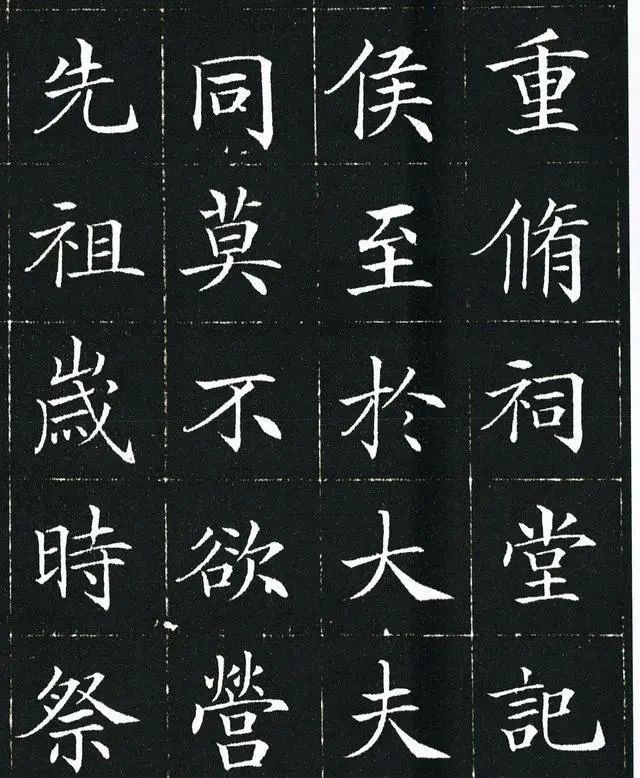 重脩祠堂記
侯至於大夫
同莫不欲營
先祖歳時祭